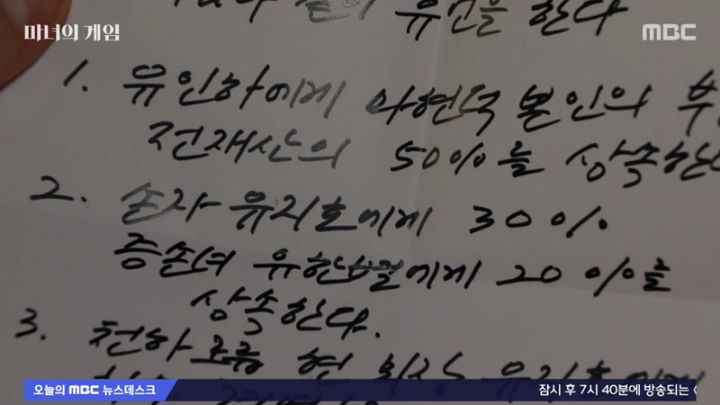 마녀의 게임
MBC
유언을 한다
1. 유인하에게 마현덕 본인의
전재산의 50%를 상속한다
2. 손자 유지호에게 30%
증손녀 유한별에게 20%를
상속한다.
3. 천하 현 회장 유지호에게
오늘의 MBC 뉴스데스크
잠시 후 7시 40분에 방송되는 <